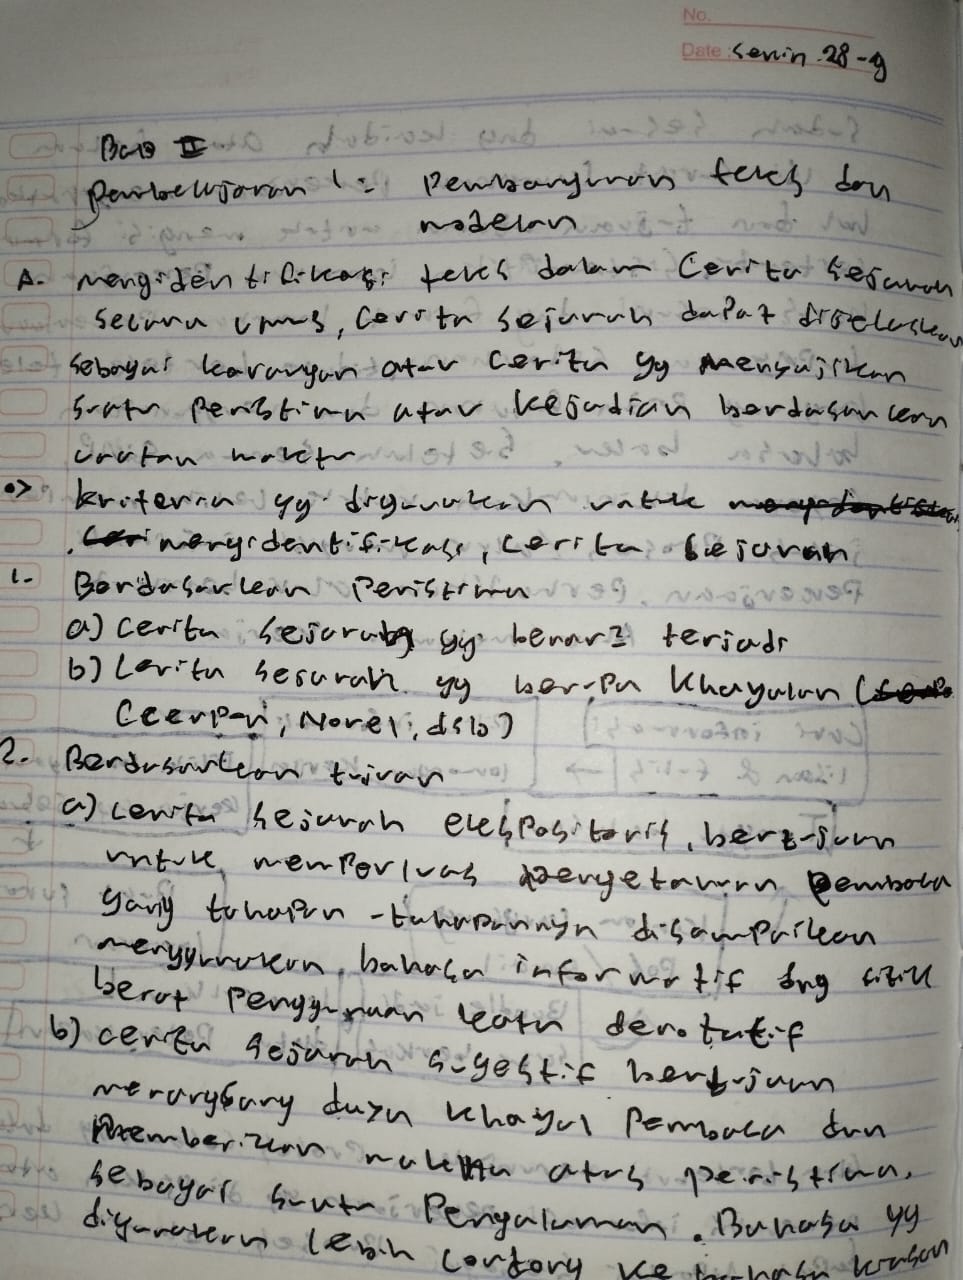 No.
Date: Senin 28-9
Bab II
Pembelajaran 1: Pembangunan teks dan
modelan
A. mengidentifikasi teks dalam Cerita Sejarah
secara umum, Cerita sejarah dapat dijelaskan
sebagai karangan atau cerita yg mensajikan
suatu peristiwa atau kejadian berdasarkan
urutan waktu
=> kriteria yg digunakan untuk
mengidentifikasi, cerita sejarah
1. Berdasarkan Peristiwa
a) cerita sejarah yg benar2 terjadi
b) cerita sejarah yg berupa Khayalan (
Ceerpen, Novel, dsb)
2. Berdasarkan tujuan
a) cerita sejarah eksposisitoris, bertujuan
untuk memperluas pengetahuan pembaca
yang tahapan-tahapannya disampaikan
menggunakan bahasa informatif dng titik
berat penggunaan kata denotatif
b) cerita sejarah sugestif bertujuan
merangsang daya khayal Pembaca dan
memberikan makna atas peristiwa,
sebagai suatu Pengalaman. Bahasa yg
digunakan lebih condong ke bahasa kiasan